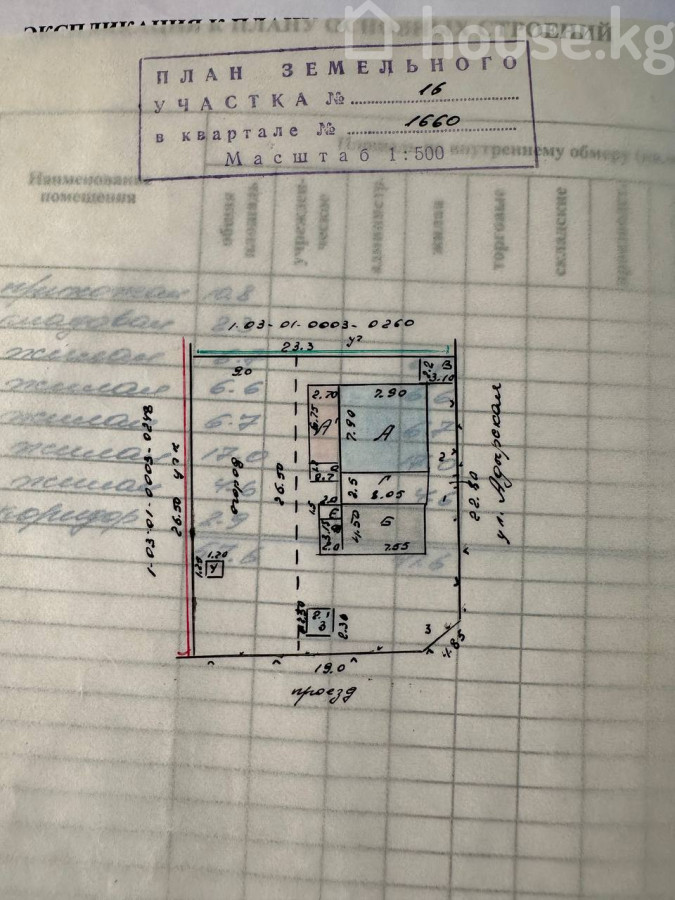 ЭКСПЛИКАЦИЯ К ПЛАНУ ОСНОВНЫХ СТРОЕНИЙ
house.kg
ПЛАН ЗЕМЕЛЬНОГО
УЧАСТКА № 16
в квартале № 1660
Масштаб 1:500
внутреннему обмеру
Наименование
помещения
общая
площадь
учрежден-
ческое
администр.
жилая
торговые
складские
производст.
прихожая 10.8
кладовая
жилая
жилая 6.6
жилая 6.7
жилая 17.0
жилая 4.6
коридор 2.9
1-03-01-0003-0260
уч
23.3
9.0
2.2
В
3.10
2.70
7.90
6.75
А'
7.90
А
1-03-01-0003-0248
26.50
огород
26.50
2.5
Г
8.05
2
1
22.80
2.0
3.15
4.50
Б
7.55
2.0
1.20
1.20
У
2.1
3
2.30
3
4.85
19.0
проезд